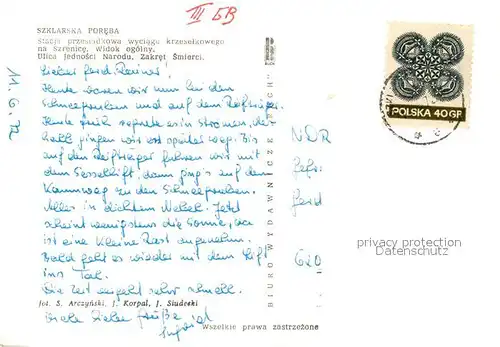 III 5B
SZKLARSKA PORĘBA
Stacja przesiadkowa wyciągu krzesełkowego
na Szrenicę. Widok ogólny.
Ulica Jedności Narodu. Zakręt Śmierci.
11.6.72
Lieber Gerd-Rainer!
Heute waren wir nun in den
Schneegruben und auf dem Reifträger.
Heute früh regnete es in Strömen, des-
halb gingen wir erst später weg. Bis
auf den Reifträger fuhren wir mit
dem Sessellift, dann ging's auf dem
Kammweg zu den Schneegruben.
Alles in dichtem Nebel. Jetzt
scheint wenigstens die Sonne, da
ist eine kleine Rast angenehm.
Bald geht es wieder mit dem Lift
ins Tal.
Die Zeit vergeht sehr schnell.
fot. S. Arczyński, J. Korpal, J. Siudecki
Viele liebe Grüße
Wszelkie prawa zastrzeżone
BIURO WYDAWNICZE „RUCH"
POLSKA 40 GR
NDR
Gerd
620
privacy protection
Datenschutz